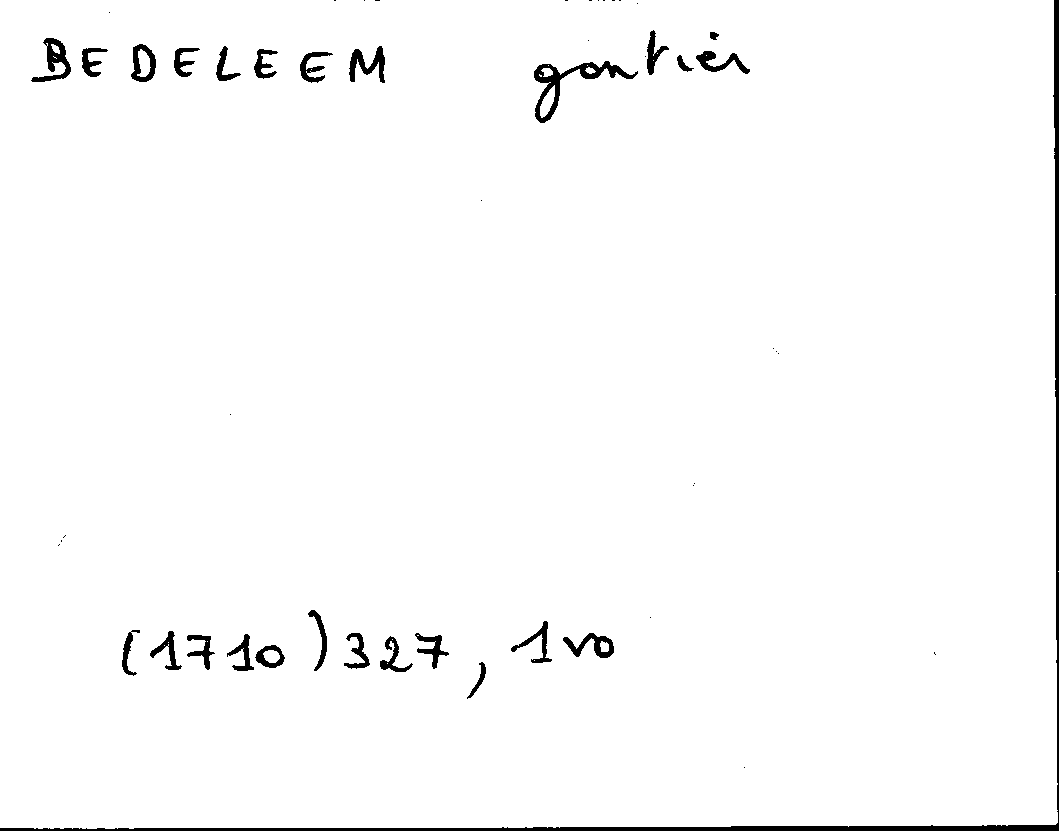 BEDELEEM gontier
(1710) 327, 1vo